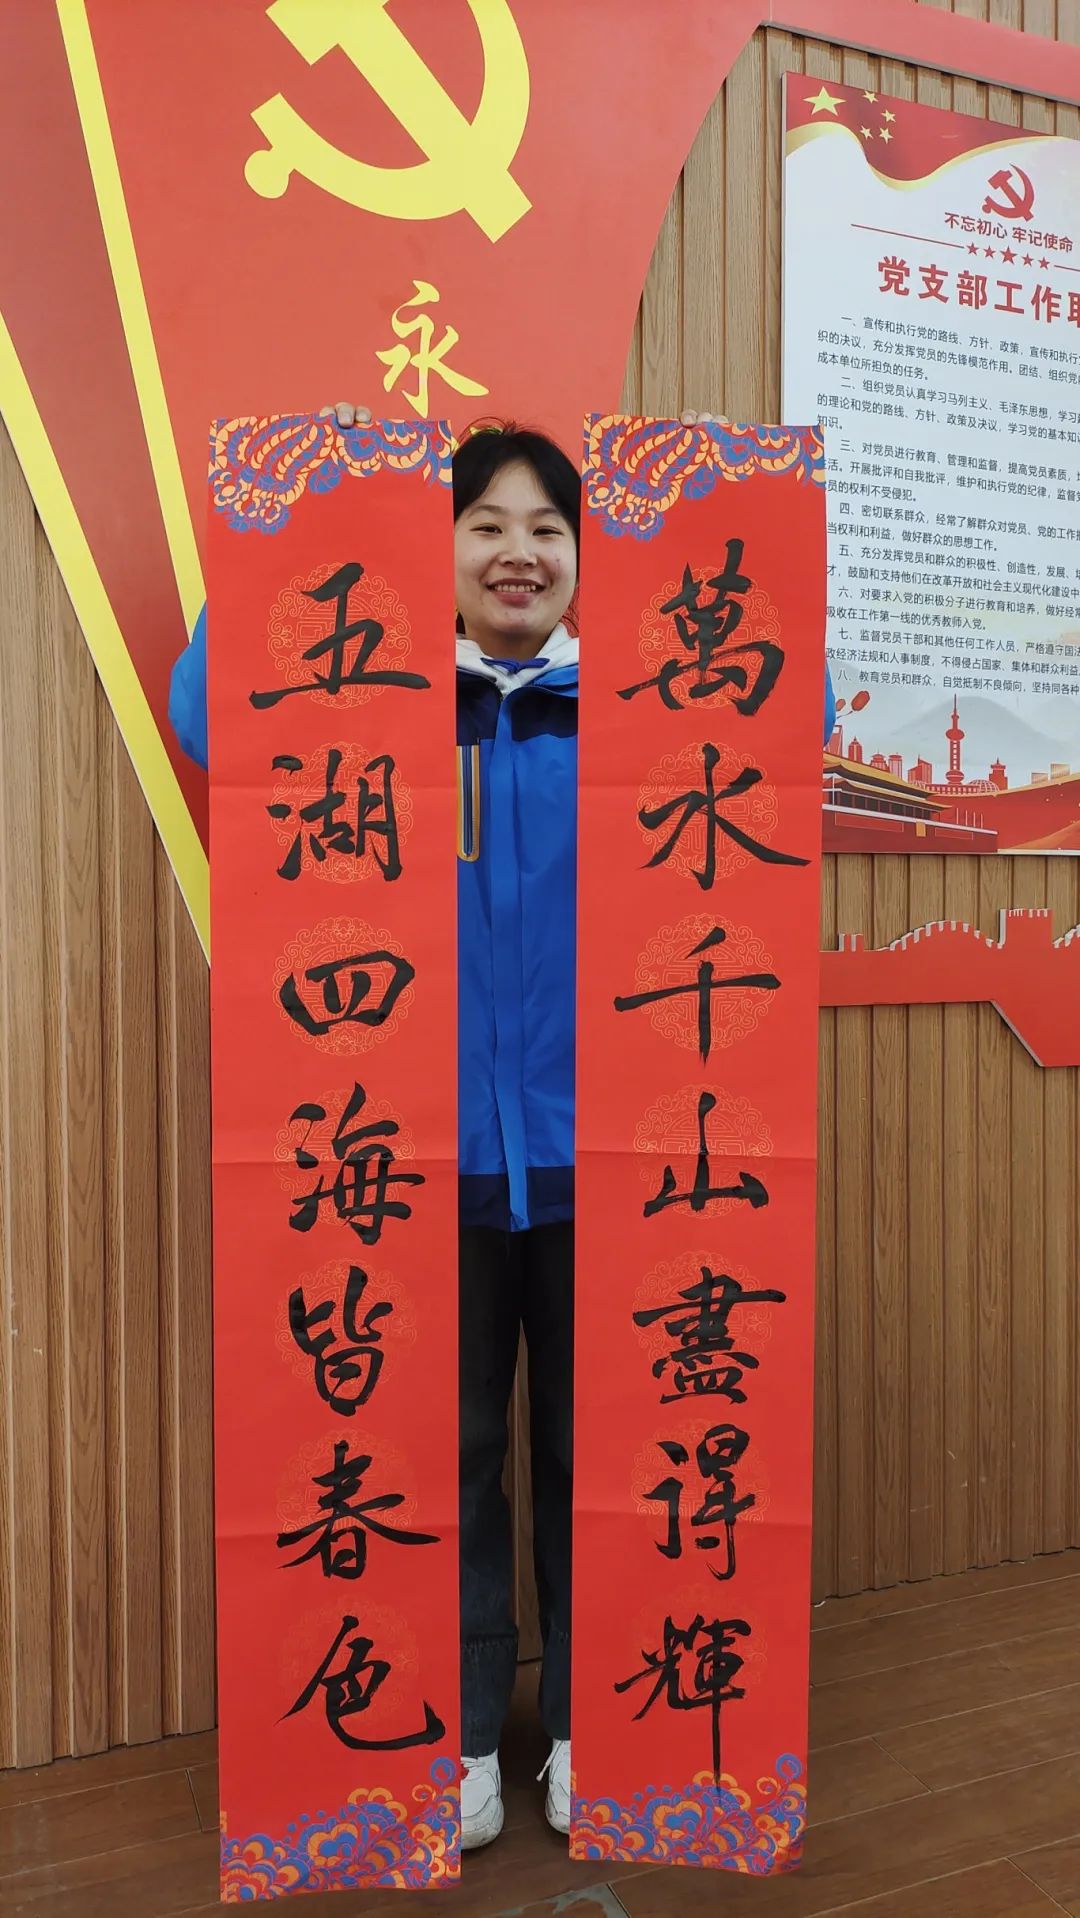 永
五湖四海皆春色
萬水千山盡得輝
不忘初心 牢记使命
党支部工作职
一、宣传和执行党的路线、方针、政策，宣传和执行
织的决议，充分发挥党员的先锋模范作用。团结、组织党
成本单位所担负的任务。
二、组织党员认真学习马列主义、毛泽东思想，学习
的理论和党的路线、方针、政策及决议，学习党的基本知
知识。
三、对党员进行教育、管理和监督，提高党员素质，
生活。开展批评和自我批评，维护和执行党的纪律，监督
员的权利不受侵犯。
四、密切联系群众，经常了解群众对党员、党的工作
当权利和利益，做好群众的思想工作。
五、充分发挥党员和群众的积极性、创造性，发展、
才，鼓励和支持他们在改革开放和社会主义现代化建设中
六、对要求入党的积极分子进行教育和培养，做好经常
吸收在工作第一线的优秀教师入党。
七、监督党员干部和其他任何工作人员，严格遵守国法
政经济法规和人事制度，不得侵占国家、集体和群众利益
八、教育党员和群众，自觉抵制不良倾向，坚持同各种